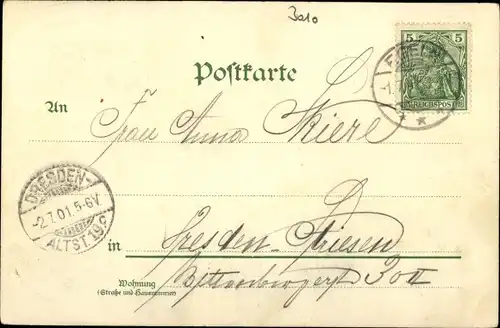 3210
5 5
REICHSPOST
Postkarte
An
Frau Anna
DRESDEN-
-2.7.01.5-6V.
ALTST.19c
in Dresden-Striesen
Wohnung
(Straße und Hausnummer)
30 II